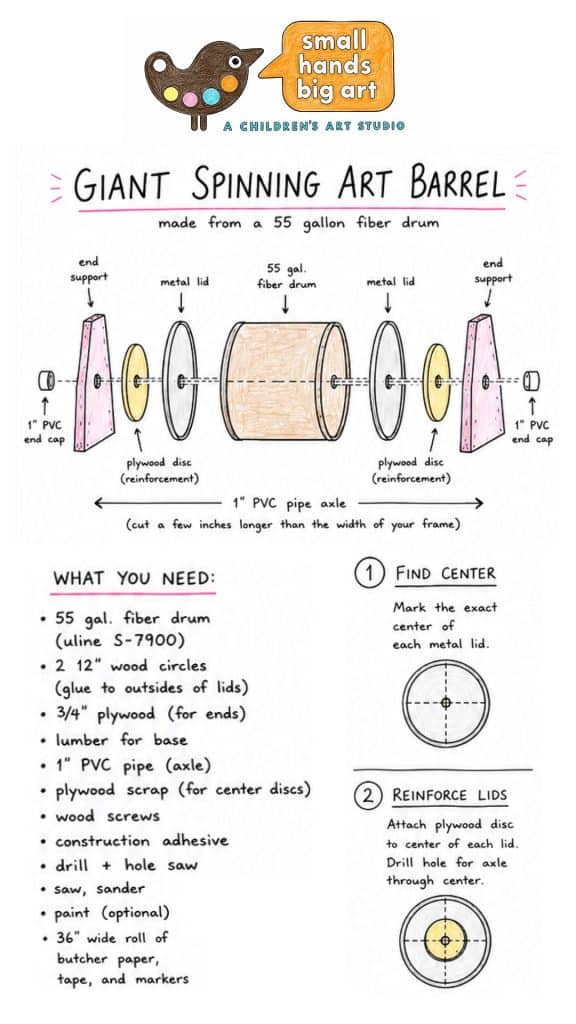 small
hands
big art
A CHILDREN'S ART STUDIO
GIANT SPINNING ART BARREL
made from a 55 gallon fiber drum
end
support
metal lid
55 gal.
fiber drum
metal lid
end
support
1" PVC
end cap
plywood disc
(reinforcement)
plywood disc
(reinforcement)
1" PVC
end cap
1" PVC pipe axle
(cut a few inches longer than the width of your frame)
WHAT YOU NEED:
• 55 gal. fiber drum
(uline S-7900)
• 2 12" wood circles
(glue to outsides of lids)
• 3/4" plywood (for ends)
• lumber for base
• 1" PVC pipe (axle)
• plywood scrap (for center discs)
• wood screws
• construction adhesive
• drill + hole saw
• saw, sander
• paint (optional)
• 36" wide roll of
butcher paper,
tape, and markers
1 FIND CENTER
Mark the exact
center of
each metal lid.
2 REINFORCE LIDS
Attach plywood disc
to center of each lid.
Drill hole for axle
through center.